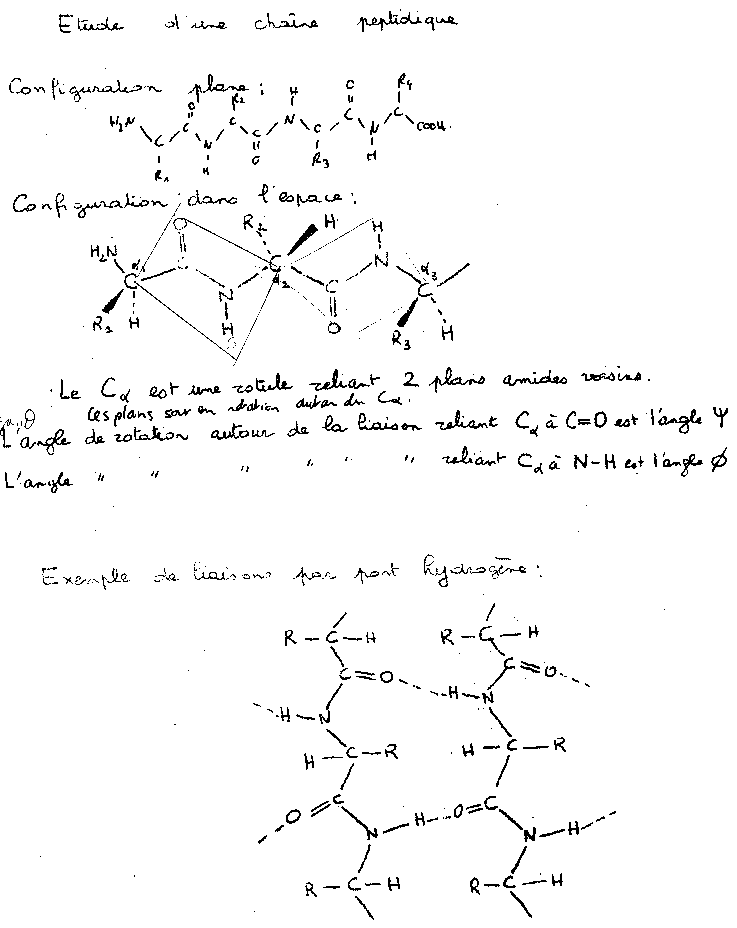 Etude d'une chaîne peptidique
Configuration plane :
H₂N C R₁ C O N H C R₂ C O N H C R₃ C O N H C R₄ COOH.
Configuration dans l'espace :
H₂N C α₁ R₂ H C O N H C α₂ R₂ H C O N H C α₃ R₃ H
Le Cα est une rotule reliant 2 plans amides voisins.
Ces plans sont en rotation autour du Cα.
L'angle de rotation autour de la liaison reliant Cα à C=O est l'angle Ψ
L'angle " " " " " " reliant Cα à N-H est l'angle Ø
Exemple de liaisons par pont hydrogène :
R-C-H R-C-H
C=O H-N C=O
H-N
H-C-R H-C-R
O=C O=C
N-H N-H
R-C-H R-C-H